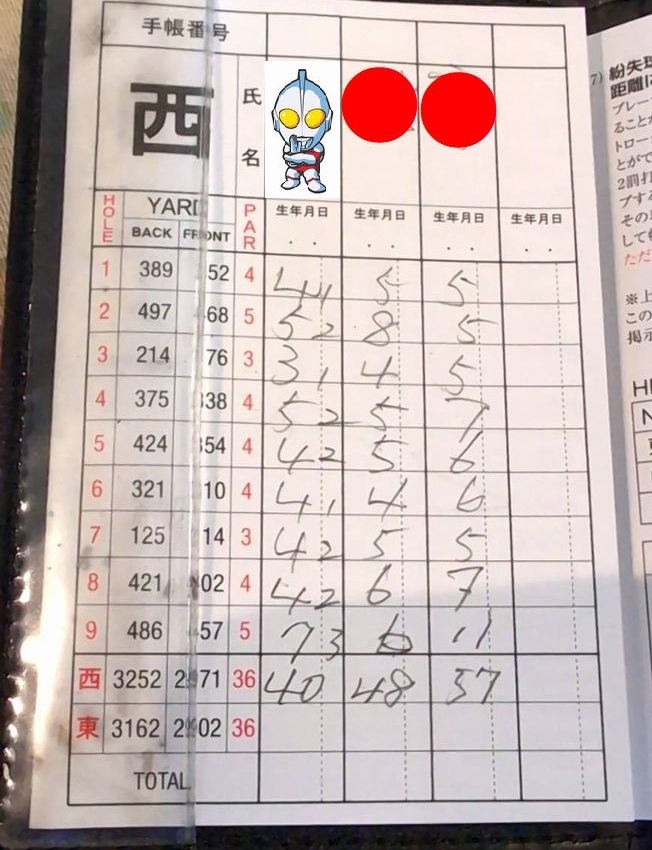 手帳番号
西 氏名
HOLE YARD PAR 生年月日 生年月日 生年月日 生年月日
BACK FRONT . . . . . . . .
1 389 52 4 4 1 5 5
2 497 68 5 5 2 8 5
3 214 76 3 3 1 4 5
4 375 38 4 5 2 5 7
5 424 354 4 4 2 5 6
6 321 10 4 4 1 4 6
7 125 14 3 4 2 5 5
8 421 02 4 4 2 6 7
9 486 57 5 7 3 6 11
西 3252 2971 36 40 48 57
東 3162 2902 36
TOTAL
7) 紛失球
距離に
プレー
ること
トロー
とがで
2罰打
プする
その
して
ただ
※上
この
掲示